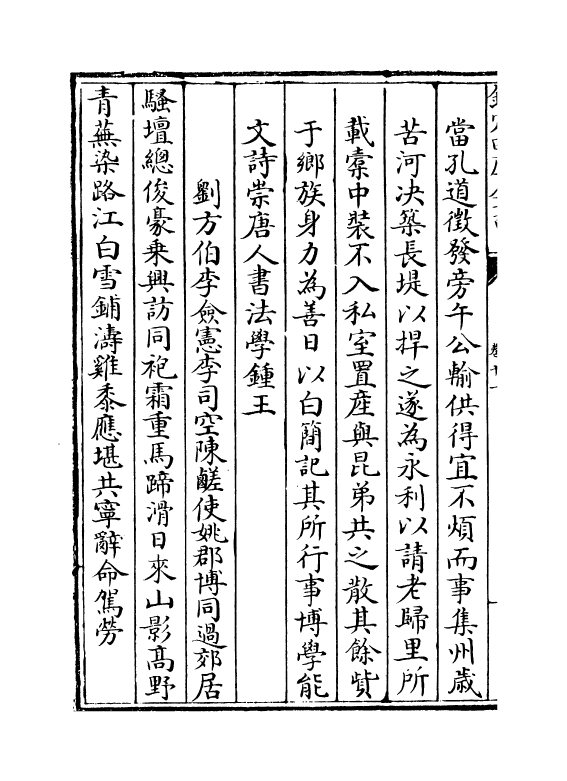 當孔道徴發旁午公輸供得宜不煩而事集州歳
苦河决築長堤以捍之遂為永利以請老歸里所
載槖中裝不入私室置産與昆弟共之散其餘貲
于鄉族身力為善日以白簡記其所行事博學能
文詩崇唐人書法學鍾王
劉方伯李僉憲李司空陳鹺使姚郡博同過郊居
騷壇總俊豪乗興訪同袍霜重馬蹄滑日來山影髙野
青蕪染路江白雪鋪濤雞黍應堪共寧辭命駕勞